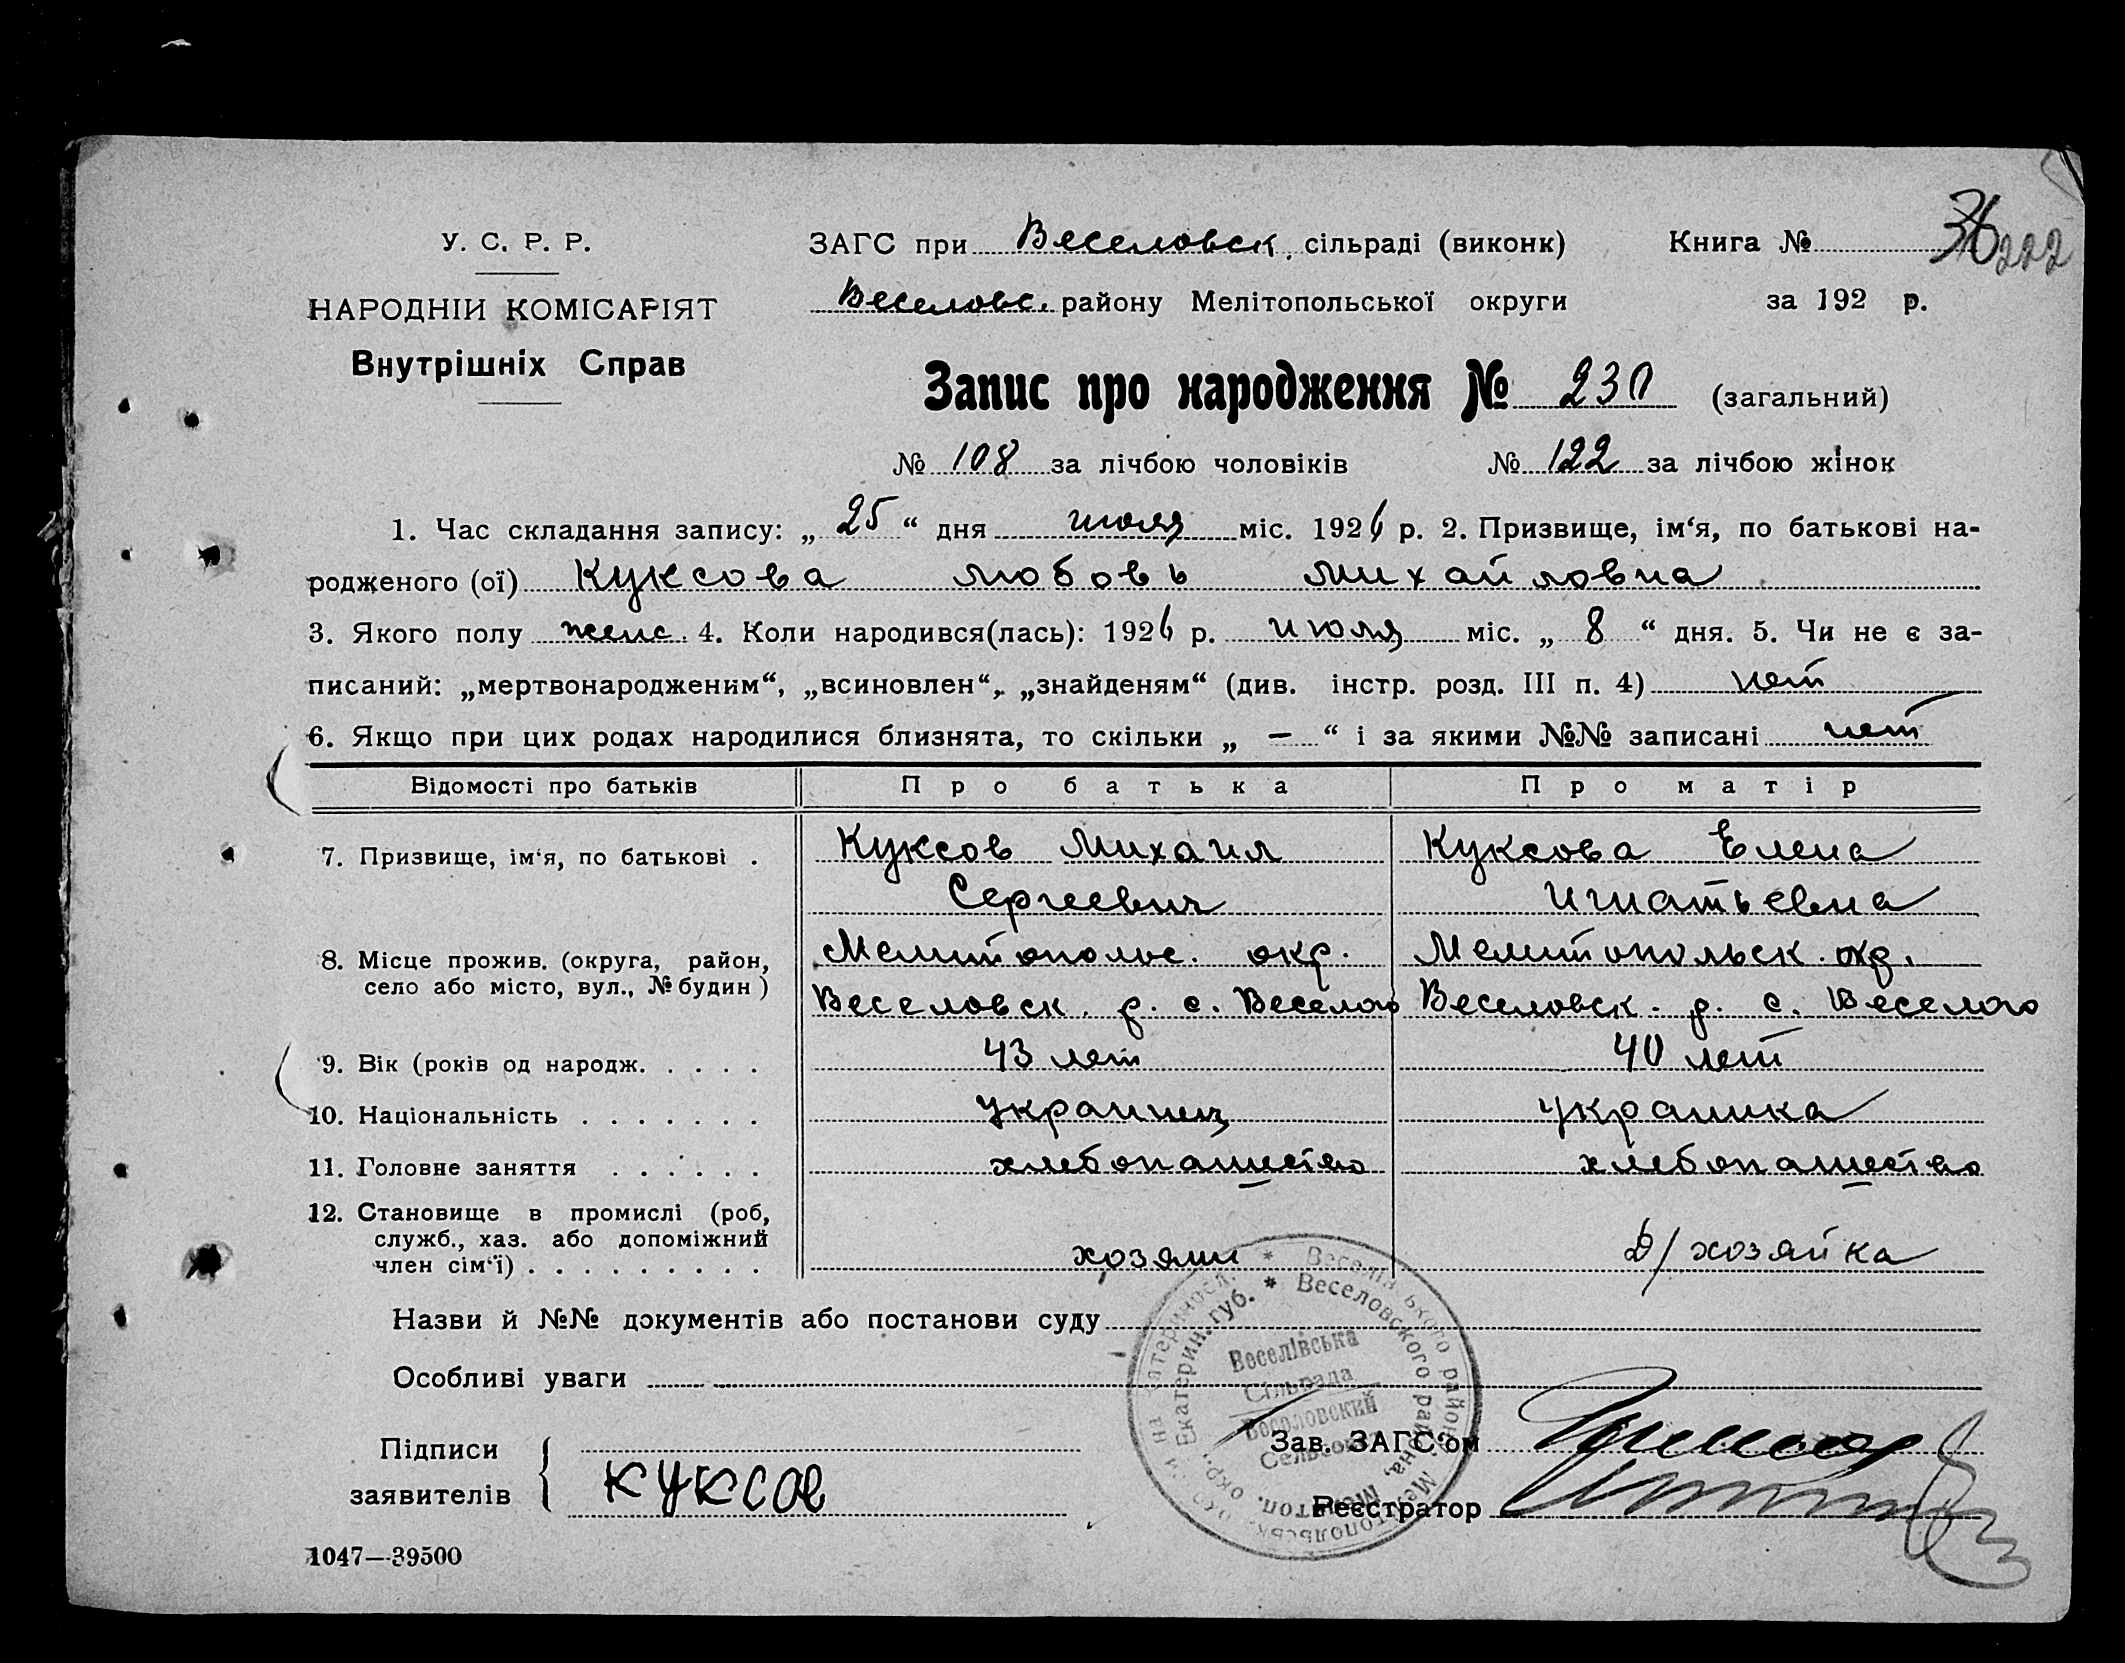 36 222
У. С. Р. Р.
НАРОДНІЙ КОМІСАРІЯТ
Внутрішніх Справ
ЗАГС при Веселовск. сільраді (виконк) Книга №
Веселовс. району Мелітопольської округи за 192 р.
Запис про народження № 230 (загальний)
№ 108 за лічбою чоловіків № 122 за лічбою жінок
1. Час складання запису: „ 25 “ дня июля міс. 1926 р. 2. Призвище, ім‘я, по батькові на-
родженого (ої) Куксова Любовь Михайловна
3. Якого полу женс. 4. Коли народився(лась): 1926 р. июля міс. „ 8 “ дня. 5. Чи не є за-
писаний: „мертвонародженим“, „всиновлен“, „знайденям“ (див. інстр. розд. III п. 4) нет
6. Якщо при цих родах народилися близнята, то скільки „ — “ і за якими №№ записані нет
Відомості про батьків Про батька Про матір
7. Призвище, ім‘я, по батькові . Куксов Михаил Куксова Елена
Сергеевич Игнатьевна
8. Місце прожив. (округа, район, Мелитополс. окр. Мелитопольск. окр.
село або місто, вул., № будин ) Веселовск. р. с. Веселого Веселовск. р. с. Веселого
9. Вік (років од народж. . . . . 43 лет 40 лет
10. Національність . . . . . . . украинец украинка
11. Головне заняття . . . . . . хлебопашество хлебопашество
12. Становище в промислі (роб,
служб., хаз. або допоміжний
член сім‘ї) . . . . . . . . . хозяин д/хозяйка
Назви й №№ документів або постанови суду
Особливі уваги
Веселівського району Мелітопольськ.
Екатерин. губ. * Веселовского района, Мелитоп. окр.
Веселівська
Сільрада
Веселовский
Сельсовет
Підписи Зав. ЗАГС‘ом
заявителів Куксов Реєстратор
1047—39500